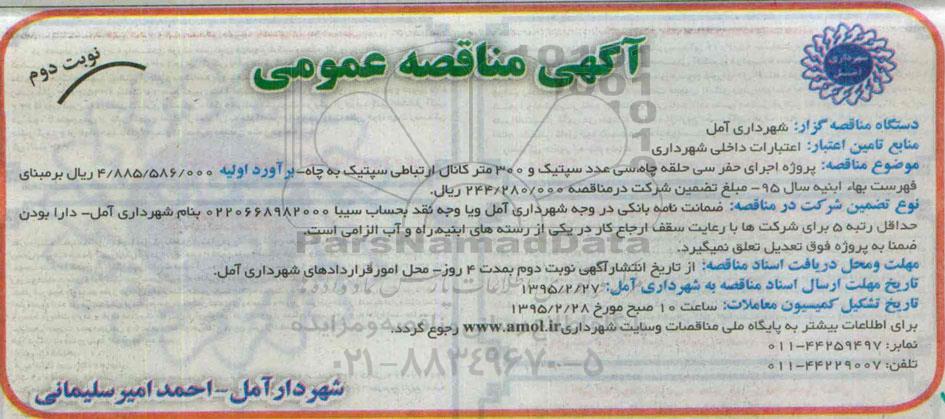 آگهی مناقصه عمومی
نوبت دوم
دستگاه مناقصه گزار: شهرداری آمل
منابع تامین اعتبار: اعتبارات داخلی شهرداری
موضوع مناقصه: پروژه اجرای حفر سی حلقه چاه،سی عدد سپتیک و ۳۰۰ متر کانال ارتباطی سپتیک به چاه-برآورد اولیه ۴/۸۸۵/۵۸۶/۰۰۰ ریال برمبنای
فهرست بهاء ابنیه سال ۹۵- مبلغ تضمین شرکت درمناقصه ۲۴۴/۲۸۰/۰۰۰ ریال.
نوع تضمین شرکت در مناقصه: ضمانت نامه بانکی در وجه شهرداری آمل ویا وجه نقد بحساب سیبا ۰۲۲۰۶۶۸۹۸۲۰۰۰ بنام شهرداری آمل- دارا بودن
حداقل رتبه ۵ برای شرکت ها با رعایت سقف ارجاع کار در یکی از رسته های ابنیه،راه و آب الزامی است.
ضمنا به پروژه فوق تعدیل تعلق نمیگیرد.
مهلت ومحل دریافت اسناد مناقصه: از تاریخ انتشارآگهی نوبت دوم بمدت ۴ روز- محل امور قراردادهای شهرداری آمل.
تاریخ مهلت ارسال اسناد مناقصه به شهرداری آمل: ۱۳۹۵/۲/۲۷
تاریخ تشکیل کمیسیون معاملات: ساعت ۱۰ صبح مورخ ۱۳۹۵/۲/۲۸
برای اطلاعات بیشتر به پایگاه ملی مناقصات وسایت شهرداری www.amol.ir رجوع گردد.
نمابر: ۴۴۲۵۹۴۹۷-۰۱۱
تلفن: ۴۴۲۲۹۰۰۷-۰۱۱
شهردار آمل - احمد امیرسلیمانی
ParsNamadData
۰۲۱-۸۸۳۴۹۶۷۰-۵